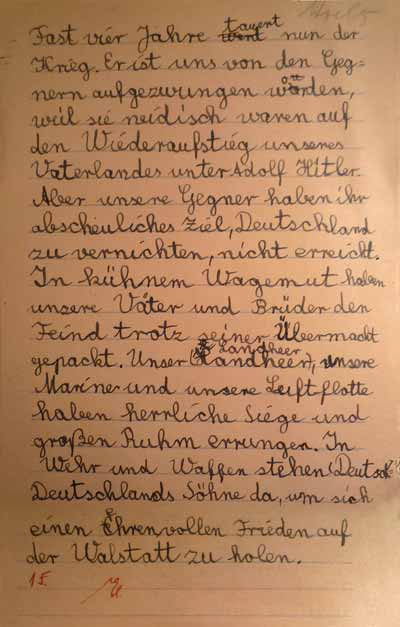 Fast vier Jahre dauert nun der
Krieg. Er ist uns von den Geg=
nern aufgezwungen worden,
weil sie neidisch waren auf
den Wiederaufstieg unseres
Vaterlandes unter Adolf Hitler.
Aber unsere Gegner haben ihr
abscheuliches Ziel, Deutschland
zu vernichten, nicht erreicht.
In kühnem Wagemut haben
unsere Väter und Brüder den
Feind trotz seiner Übermacht
gepackt. Unser Landheer, unsere
Marine und unsere Luftflotte
haben herrliche Siege und
großen Ruhm errungen. In
Wehr und Waffen stehen (Deutsch
Deutschlands Söhne da, um sich
einen Ehrenvollen Frieden auf
der Walstatt zu holen.